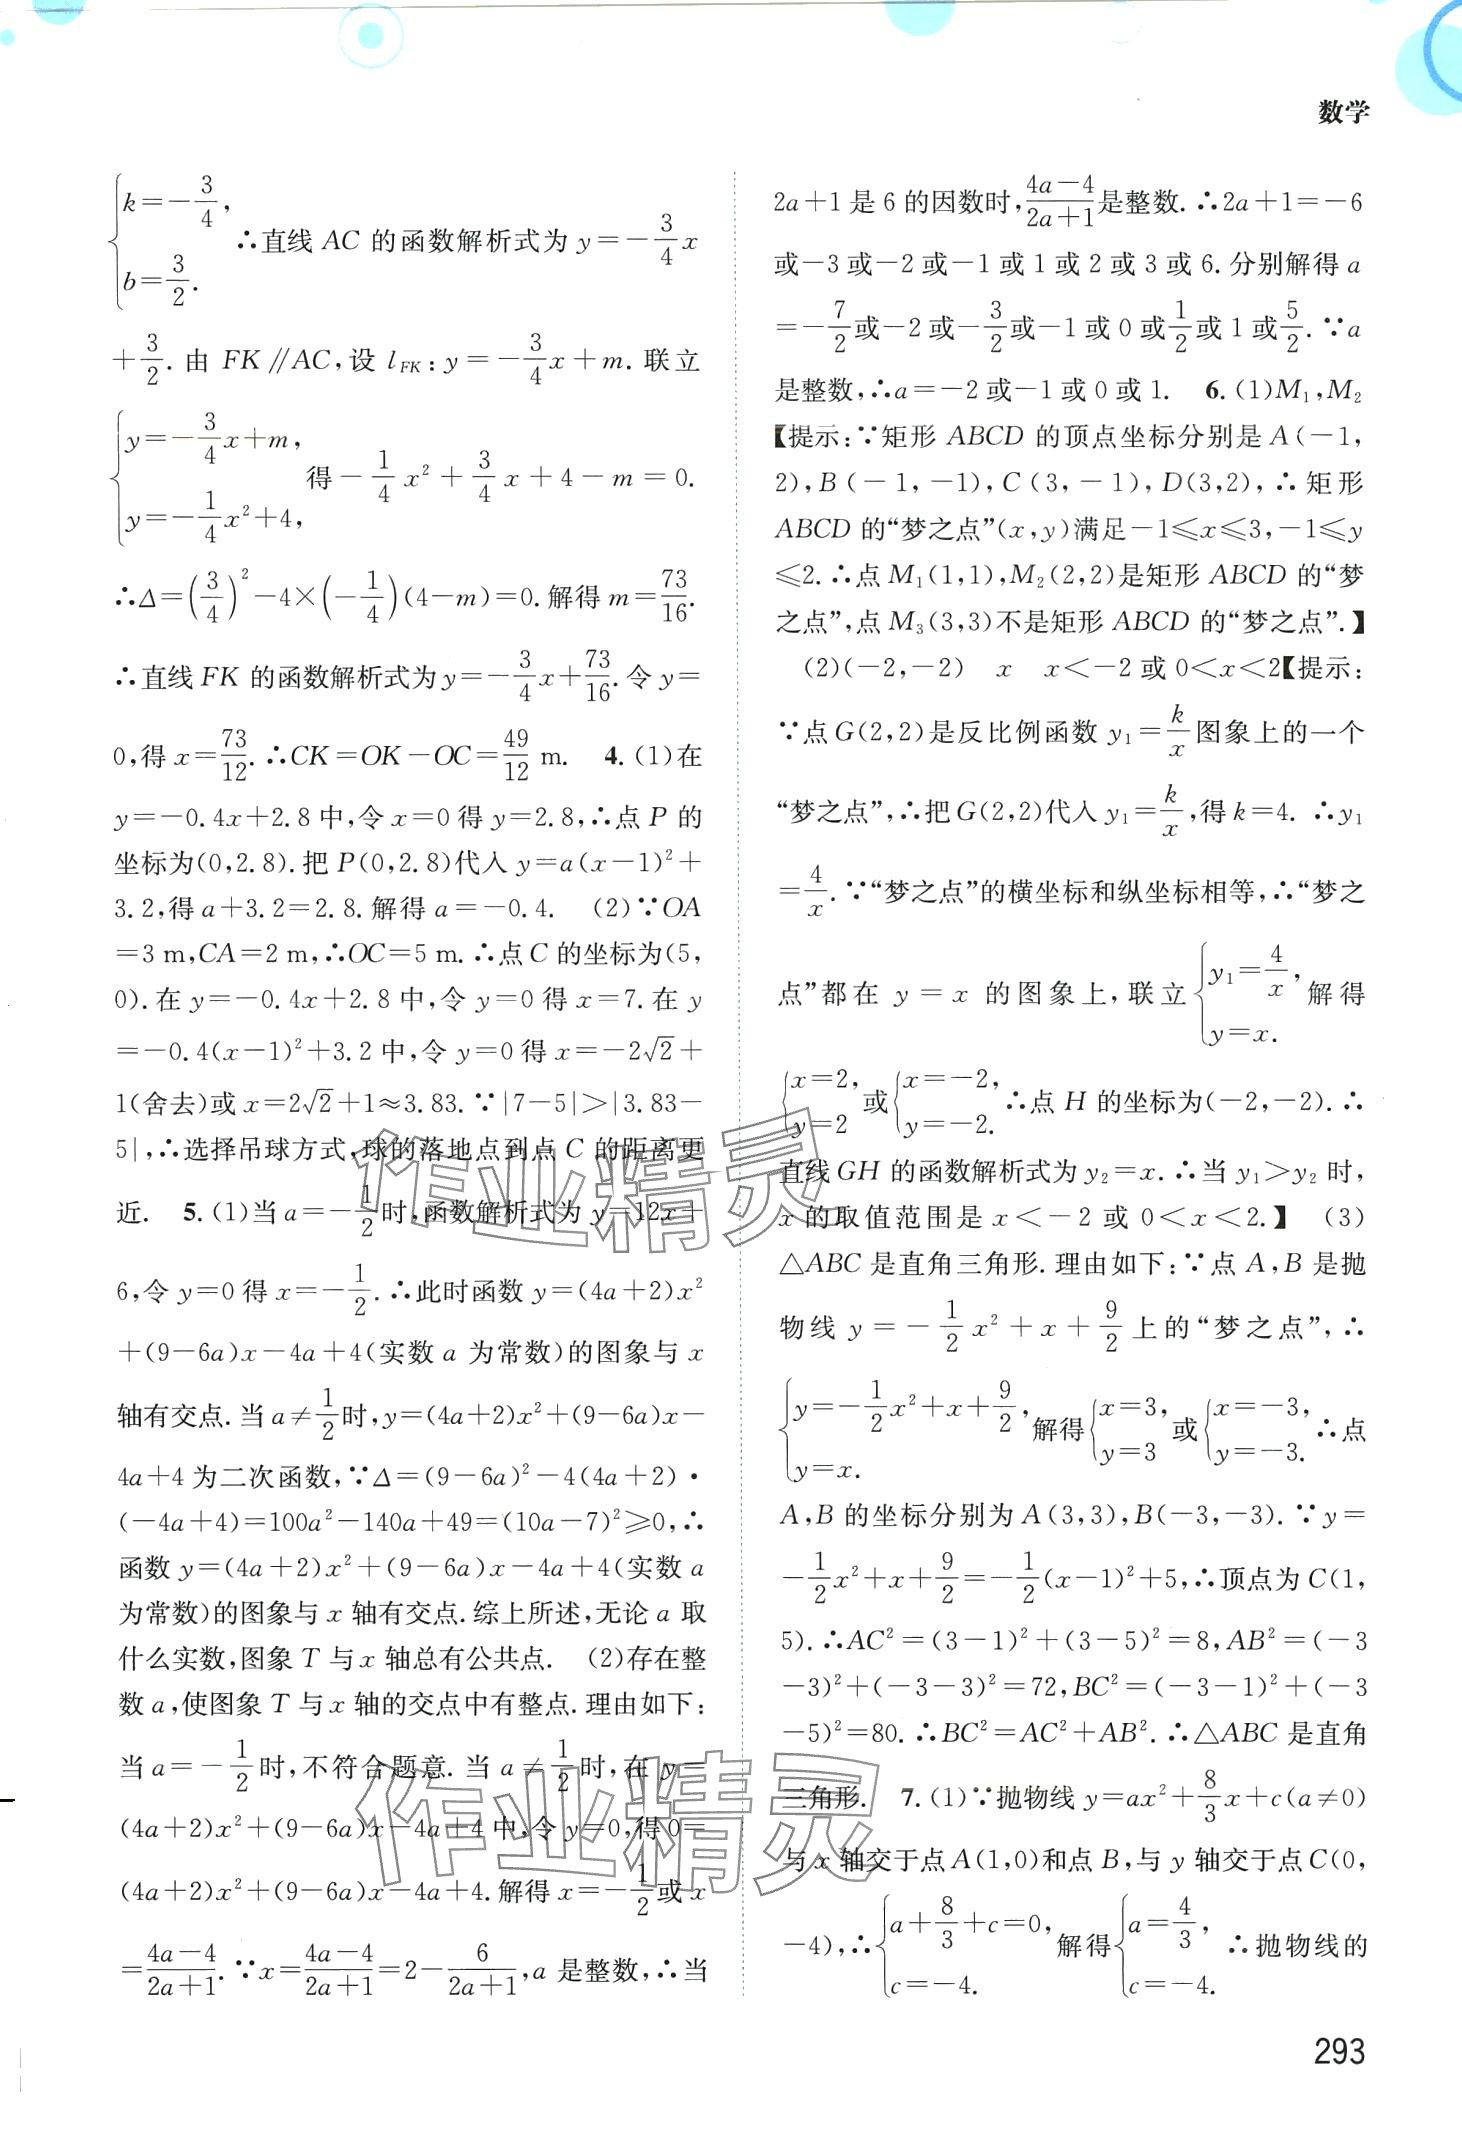 数学
{k=-3/4,
b=3/2. ∴直线 AC 的函数解析式为 y=-3/4x
+3/2. 由 FK∥AC,设 l_FK:y=-3/4x+m. 联立
{y=-3/4x+m,
y=-1/4x²+4, 得-1/4x²+3/4x+4-m=0.
∴Δ=(3/4)²-4×(-1/4)(4-m)=0.解得 m=73/16.
∴直线 FK 的函数解析式为 y=-3/4x+73/16.令 y=
0,得 x=73/12.∴CK=OK-OC=49/12 m. 4.(1)在
y=-0.4x+2.8 中,令 x=0 得 y=2.8,∴点 P 的
坐标为(0,2.8).把 P(0,2.8)代入 y=a(x-1)²+
3.2,得 a+3.2=2.8.解得 a=-0.4. (2)∵OA
=3 m,CA=2 m,∴OC=5 m.∴点 C 的坐标为(5,
0).在 y=-0.4x+2.8 中,令 y=0 得 x=7.在 y
=-0.4(x-1)²+3.2 中,令 y=0 得 x=-2√2+
1(舍去)或 x=2√2+1≈3.83.∵|7-5|>|3.83-
5|,∴选择吊球方式,球的落地点到点 C 的距离更
近. 5.(1)当 a=-1/2时,函数解析式为 y=12x+
6,令 y=0 得 x=-1/2.∴此时函数 y=(4a+2)x²
+(9-6a)x-4a+4(实数 a 为常数)的图象与 x
轴有交点.当 a≠1/2时,y=(4a+2)x²+(9-6a)x-
4a+4 为二次函数,∵Δ=(9-6a)²-4(4a+2)·
(-4a+4)=100a²-140a+49=(10a-7)²≥0,∴
函数 y=(4a+2)x²+(9-6a)x-4a+4(实数 a
为常数)的图象与 x 轴有交点.综上所述,无论 a 取
什么实数,图象 T 与 x 轴总有公共点. (2)存在整
数 a,使图象 T 与 x 轴的交点中有整点.理由如下:
当 a=-1/2时,不符合题意.当 a≠1/2时,在 y=
(4a+2)x²+(9-6a)x-4a+4 中,令 y=0,得 0=
(4a+2)x²+(9-6a)x-4a+4.解得 x=-1/2或 x
=(4a-4)/(2a+1).∵x=(4a-4)/(2a+1)=2-6/(2a+1),a 是整数,∴当
2a+1 是 6 的因数时,(4a-4)/(2a+1)是整数.∴2a+1=-6
或-3 或-2 或-1 或 1 或 2 或 3 或 6.分别解得 a
=-7/2或-2 或-3/2或-1 或 0 或1/2或 1 或5/2.∵a
是整数,∴a=-2 或-1 或 0 或 1. 6.(1)M₁,M₂
【提示:∵矩形 ABCD 的顶点坐标分别是 A(-1,
2),B(-1,-1),C(3,-1),D(3,2),∴矩形
ABCD 的“梦之点”(x,y)满足-1≤x≤3,-1≤y
≤2.∴点 M₁(1,1),M₂(2,2)是矩形 ABCD 的“梦
之点”,点 M₃(3,3)不是矩形 ABCD 的“梦之点”.】
(2)(-2,-2) x x<-2 或 0<x<2【提示:
∵点 G(2,2)是反比例函数 y₁=k/x图象上的一个
“梦之点”,∴把 G(2,2)代入 y₁=k/x,得 k=4. ∴y₁
=4/x.∵“梦之点”的横坐标和纵坐标相等,∴“梦之
点”都在 y=x 的图象上,联立{y₁=4/x,
y=x. 解得
{x=2,
y=2 或{x=-2,
y=-2. ∴点 H 的坐标为(-2,-2).∴
直线 GH 的函数解析式为 y₂=x.∴当 y₁>y₂ 时,
x 的取值范围是 x<-2 或 0<x<2.】 (3)
△ABC 是直角三角形.理由如下:∵点 A,B 是抛
物线 y=-1/2x²+x+9/2上的“梦之点”,∴
{y=-1/2x²+x+9/2,
y=x. 解得{x=3,
y=3 或{x=-3,
y=-3. ∴点
A,B 的坐标分别为 A(3,3),B(-3,-3).∵y=
-1/2x²+x+9/2=-1/2(x-1)²+5,∴顶点为 C(1,
5).∴AC²=(3-1)²+(3-5)²=8,AB²=(-3
-3)²+(-3-3)²=72,BC²=(-3-1)²+(-3
-5)²=80.∴BC²=AC²+AB².∴△ABC 是直角
三角形. 7.(1)∵抛物线 y=ax²+8/3x+c(a≠0)
与 x 轴交于点 A(1,0)和点 B,与 y 轴交于点 C(0,
-4),∴{a+8/3+c=0,
c=-4. 解得{a=4/3,
c=-4. ∴抛物线的
293
作业精灵
作业精灵